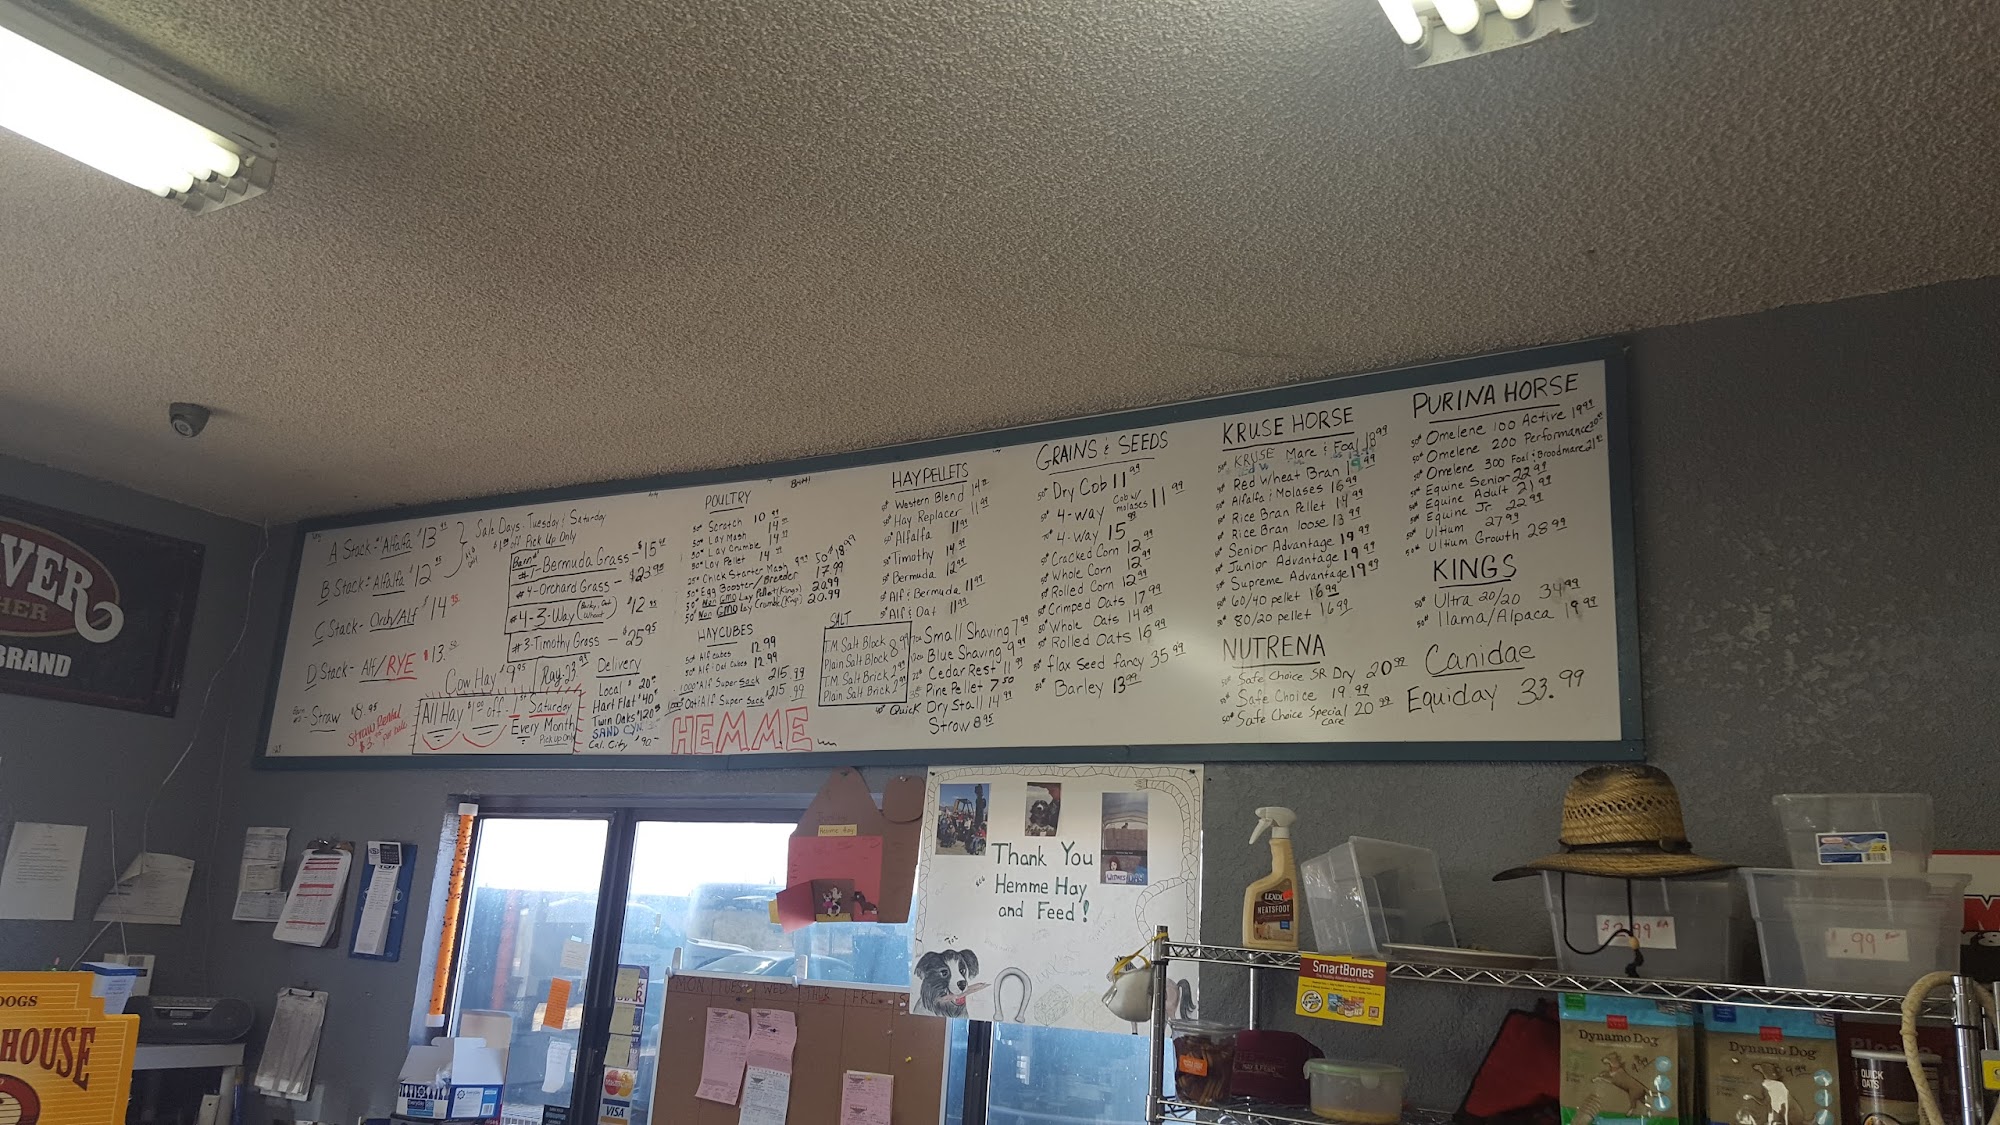 A Stack - Alfalfa $13.95
B Stack - Alfalfa $12.95
C Stack - Orch/Alf $14.95
D Stack - Alf/RYE $13.50
Straw $8.95
Straw Rental
per bale
Sale Days: Tuesday & Saturday
$1.00 off Pick Up Only
Barn
#1 - Bermuda Grass - $15.95
#4 - Orchard Grass - $23.95
#4 - 3-Way (Barley, Oat, Wheat) $12.95
#3 - Timothy Grass - $25.95
Cow Hay $9.95
All Hay $1.00 off - 1st Saturday
Every Month
Pick up Only
Delivery
Local $20
Hart Flat $40
Twin Oaks $120
SAND CYN.
Cal. City $90
POULTRY
50# Scratch 10.99
50# Lay Mash 14
50# Lay Crumble 14
50# Lay Pellet 14
25# Chick Starter Mash 9.99 50# 18.99
50# Egg Booster/Breeder 17.99
50# Non GMO Lay Pellet (Kings) 20.99
50# Non GMO Lay Crumble (Kings) 20.99
HAYCUBES
50# Alf cubes 12.99
50# Alf & Oat cubes 12.99
1000# Alf Super Sack 215.99
Oat/Alf Super Sack $215.99
HEMME
SALT
T.M. Salt Block
Plain Salt Block 8.99
T.M. Salt Brick 2.99
Plain Salt Brick 2.99
HAY PELLETS
50# Western Blend 14
50# Hay Replacer 11.99
50# Alfalfa 11.99
50# Timothy 14.99
50# Bermuda 12.99
50# Alf & Bermuda 11.99
50# Alf & Oat 11.99
Small Shaving 7.99
Blue Shaving 9.99
Cedar Rest 11.99
Pine Pellet 7.50
Quick Dry Stall 14.99
Straw 8.95
GRAINS & SEEDS
50# Dry Cob 11.99
50# 4-way Cob w/ molases 11.99
70# 4-way 15.99
50# Cracked Corn 12.99
50# Whole Corn 12.99
50# Rolled Corn 12.99
50# Crimped Oats 17.99
50# Whole Oats 14.99
50# Rolled Oats 16.99
50# flax Seed fancy 35.99
50# Barley 13.99
KRUSE HORSE
50# KRUSE Mare & Foal 18.99
Red Wheat Bran 19.99
50# Alfalfa & Molases 16.99
50# Rice Bran Pellet 14.99
50# Rice Bran loose 13.99
50# Senior Advantage 19.99
50# Junior Advantage 19.99
50# Supreme Advantage 19.99
50# 60/40 pellet 16.99
50# 80/20 pellet 16.99
NUTRENA
50# Safe Choice SR Dry 20.99
50# Safe Choice 19.99
50# Safe Choice Special care 20.99
PURINA HORSE
50# Omelene 100 Active 19.99
50# Omelene 200 Performance
50# Omelene 300 Foal & Broodmare
50# Equine Senior 22.99
50# Equine Adult 21.99
50# Equine Jr 22.99
50# Ultium 27.99
50# Ultium Growth 28.99
KINGS
50# Ultra 20/20 34.99
50# llama/Alpaca 19.99
Canidae
Equiday 33.99
VER
HER
BRAND
Thank You
Hemme Hay
and Feed!
MON TUES WED THUR FRI S
DOGS
HOUSE
VISA
LEXOL
NEATSFOOT
SmartBones
$2.99 EA
.99
Dynamo Dog
Dynamo Dog
QUICK
OATS